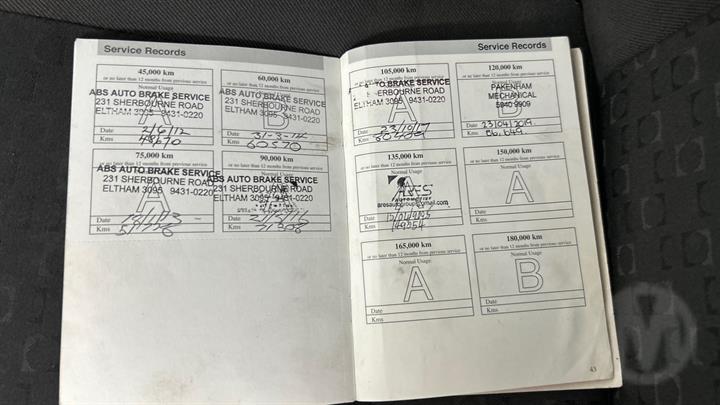 Service Records
45,000 km
or no later than 12 months from previous service
Normal Usage
ABS AUTO BRAKE SERVICE
231 SHERBOURNE ROAD
ELTHAM 3095 9431-0220
A
Date 2/6/12
Kms
60,000 km
or no later than 12 months from previous service
ABS AUTO BRAKE SERVICE
231 SHERBOURNE ROAD
ELTHAM 3095 9431-0220
B
Date 31-3-14
Kms 60570
75,000 km
or no later than 12 months from previous service
Normal Usage
ABS AUTO BRAKE SERVICE
231 SHERBOURNE ROAD
ELTHAM 3095 9431-0220
A
Date
Kms
90,000 km
or no later than 12 months from previous service
Normal Usage
ABS AUTO BRAKE SERVICE
231 SHERBOURNE ROAD
ELTHAM 3095 9431-0220
Date
Kms 71308
Service Records
105,000 km
or no later than 12 months from previous service
TO BRAKE SERVICE
SHERBOURNE ROAD
ELTHAM 3095 9431-0220
A
Date 23/10/17
Kms
120,000 km
or no later than 12 months from previous service
Normal Usage
PAKENHAM
MECHANICAL
5940 9909
B
Date 23/04/2019.
Kms 86,649.
135,000 km
or no later than 12 months from previous service
Normal Usage
ARES
AUTOMOTIVE
aresautogroup@gmail.com
Date
Kms
150,000 km
or no later than 12 months from previous service
Normal Usage
A
Date
Kms
165,000 km
or no later than 12 months from previous service
Normal Usage
A
Date
Kms
180,000 km
or no later than 12 months from previous service
Normal Usage
B
Date
Kms
43